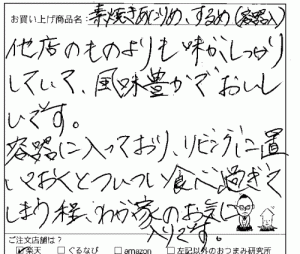 お買い上げ商品名：素焼きあたりめ、するめ（容器入）
他店のものよりも味がしっかり
していて、風味豊かでおいし
いです。
容器に入っており、リビングに置
いておくとついつい食べ過ぎて
しまう程、わが家のお気に
入りです。
ご注文店舗は？
☑楽天 □ぐるなび □amazon □左記以外のおつまみ研究所